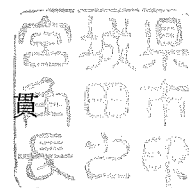 宮城県
角田市
長之印
貫